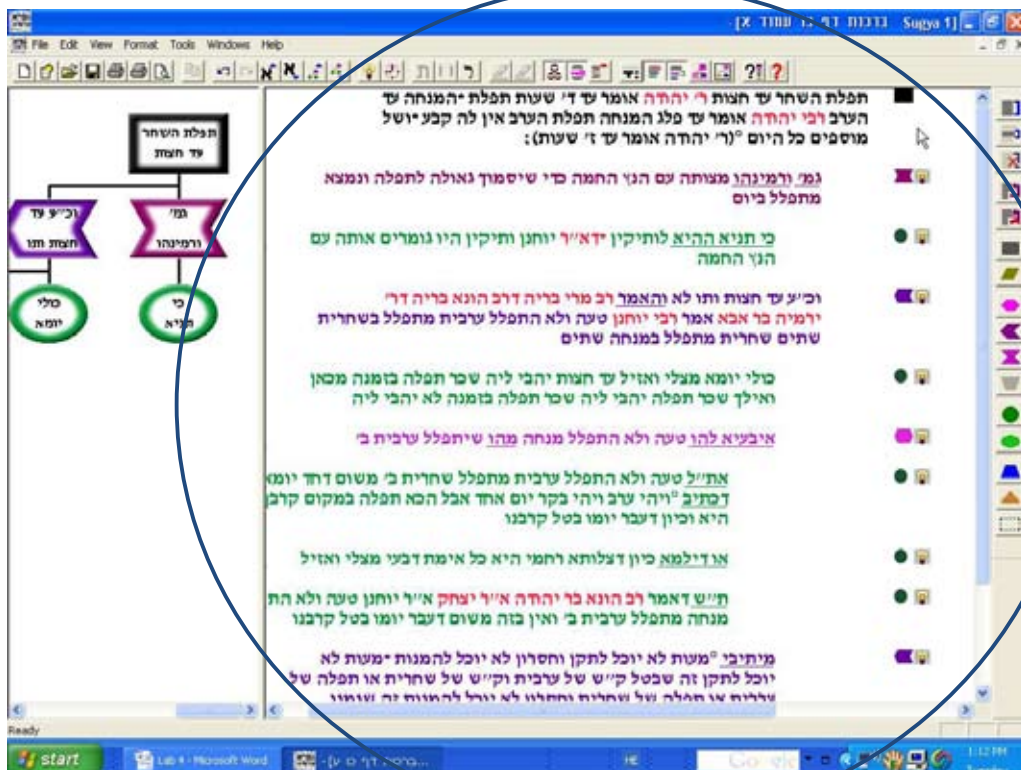 Sugya 1] - [ברכות דף כו עמוד א
File Edit View Format Tools Windows Help
תפלת השחר עד חצות ר׳ יהודה אומר עד ד׳ שעות תפלת *המנחה עד
הערב רבי יהודה אומר עד פלג המנחה תפלת הערב אין לה קבע *ושל
מוספים כל היום °(ר׳ יהודה אומר עד ז׳ שעות):
גמ׳ ורמינהו מצותה עם הנץ החמה כדי שיסמוך גאולה לתפלה ונמצא
מתפלל ביום
כי תניא ההיא לותיקין *דא״ר יוחנן ותיקין היו גומרים אותה עם
הנץ החמה
וכ״ע עד חצות ותו לא והאמר רב מרי בריה דרב הונא בריה דר׳
ירמיה בר אבא אמר רבי יוחנן טעה ולא התפלל ערבית מתפלל בשחרית
שתים שחרית מתפלל במנחה שתים
כולי יומא מצלי ואזיל עד חצות יהבי ליה שכר תפלה בזמנה מכאן
ואילך שכר תפלה יהבי ליה שכר תפלה בזמנה לא יהבי ליה
איבעיא להו טעה ולא התפלל מנחה מהו שיתפלל ערבית ב׳
את״ל טעה ולא התפלל ערבית מתפלל שחרית ב׳ משום דחד יומא
דכתיב °ויהי ערב ויהי בקר יום אחד אבל הכא תפלה במקום קרבן
היא וכיון דעבר יומו בטל קרבנו
או דילמא כיון דצלותא רחמי היא כל אימת דבעי מצלי ואזיל
ת״ש דאמר רב הונא בר יהודה א״ר יצחק א״ר יוחנן טעה ולא הת
מנחה מתפלל ערבית ב׳ ואין בזה משום דעבר יומו בטל קרבנו
מיתיבי °מעות לא יוכל לתקן וחסרון לא יוכל להמנות *מעות לא
יוכל לתקן זה שבטל ק״ש של ערבית וק״ש של שחרית או תפלה של
ערבית או תפלה של שחרית וחסרון לא יוכל להמנות זה שנמנו
תפלת השחר
עד חצות
גמ׳
ורמינהו
וכ״ע עד
חצות ותו
כי
תניא
כולי
יומא
Ready
start
Lab 4 - Microsoft Word
HE
Google
1:12 PM